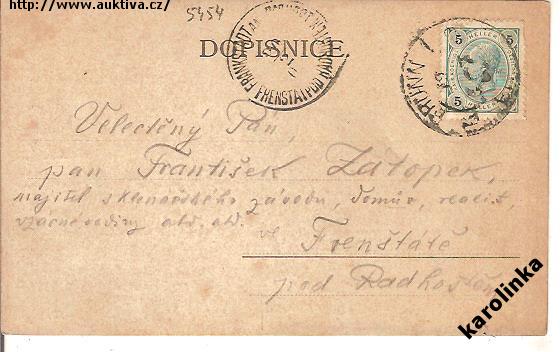 http://www.auktiva.cz/
5454
DOPISNICE.
FRENŠTÁT POD RADHOŠTĚM
BRÜNN 1
5 HELLER 5
Velectěný Pán,
pan František Zátopek,
majitel sklenářského závodu, domův, realit,
vzácné rodiny atd. atd.
ve Frenštátě
pod Radhoštěm
karolinka